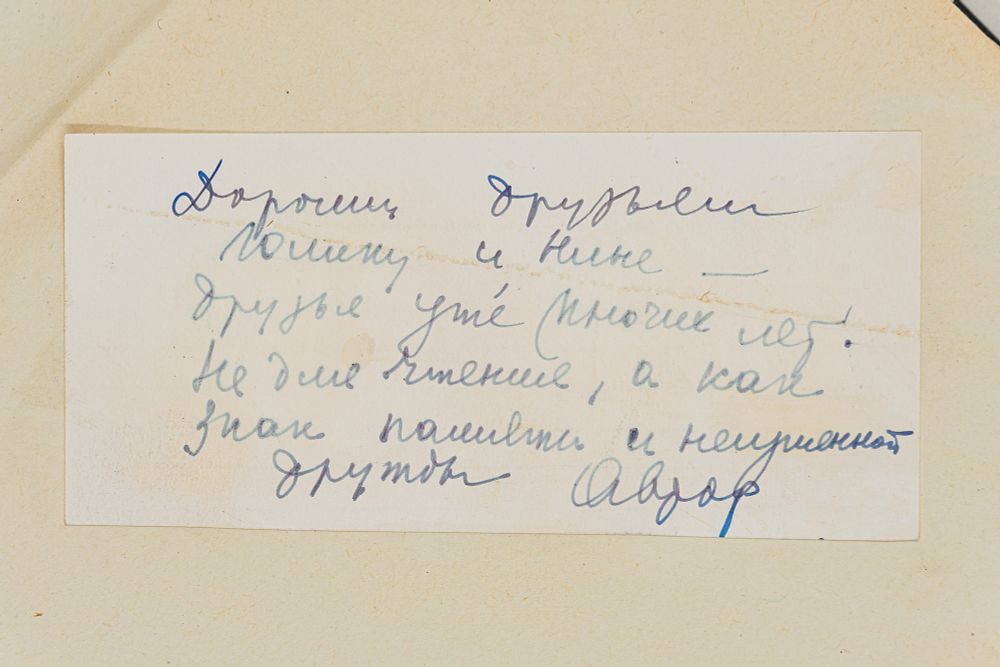 Дорогим друзьям
и Нине —
друзья уже многих лет!
Не для чтения, а как
знак памяти и неизменной
дружбы Автор